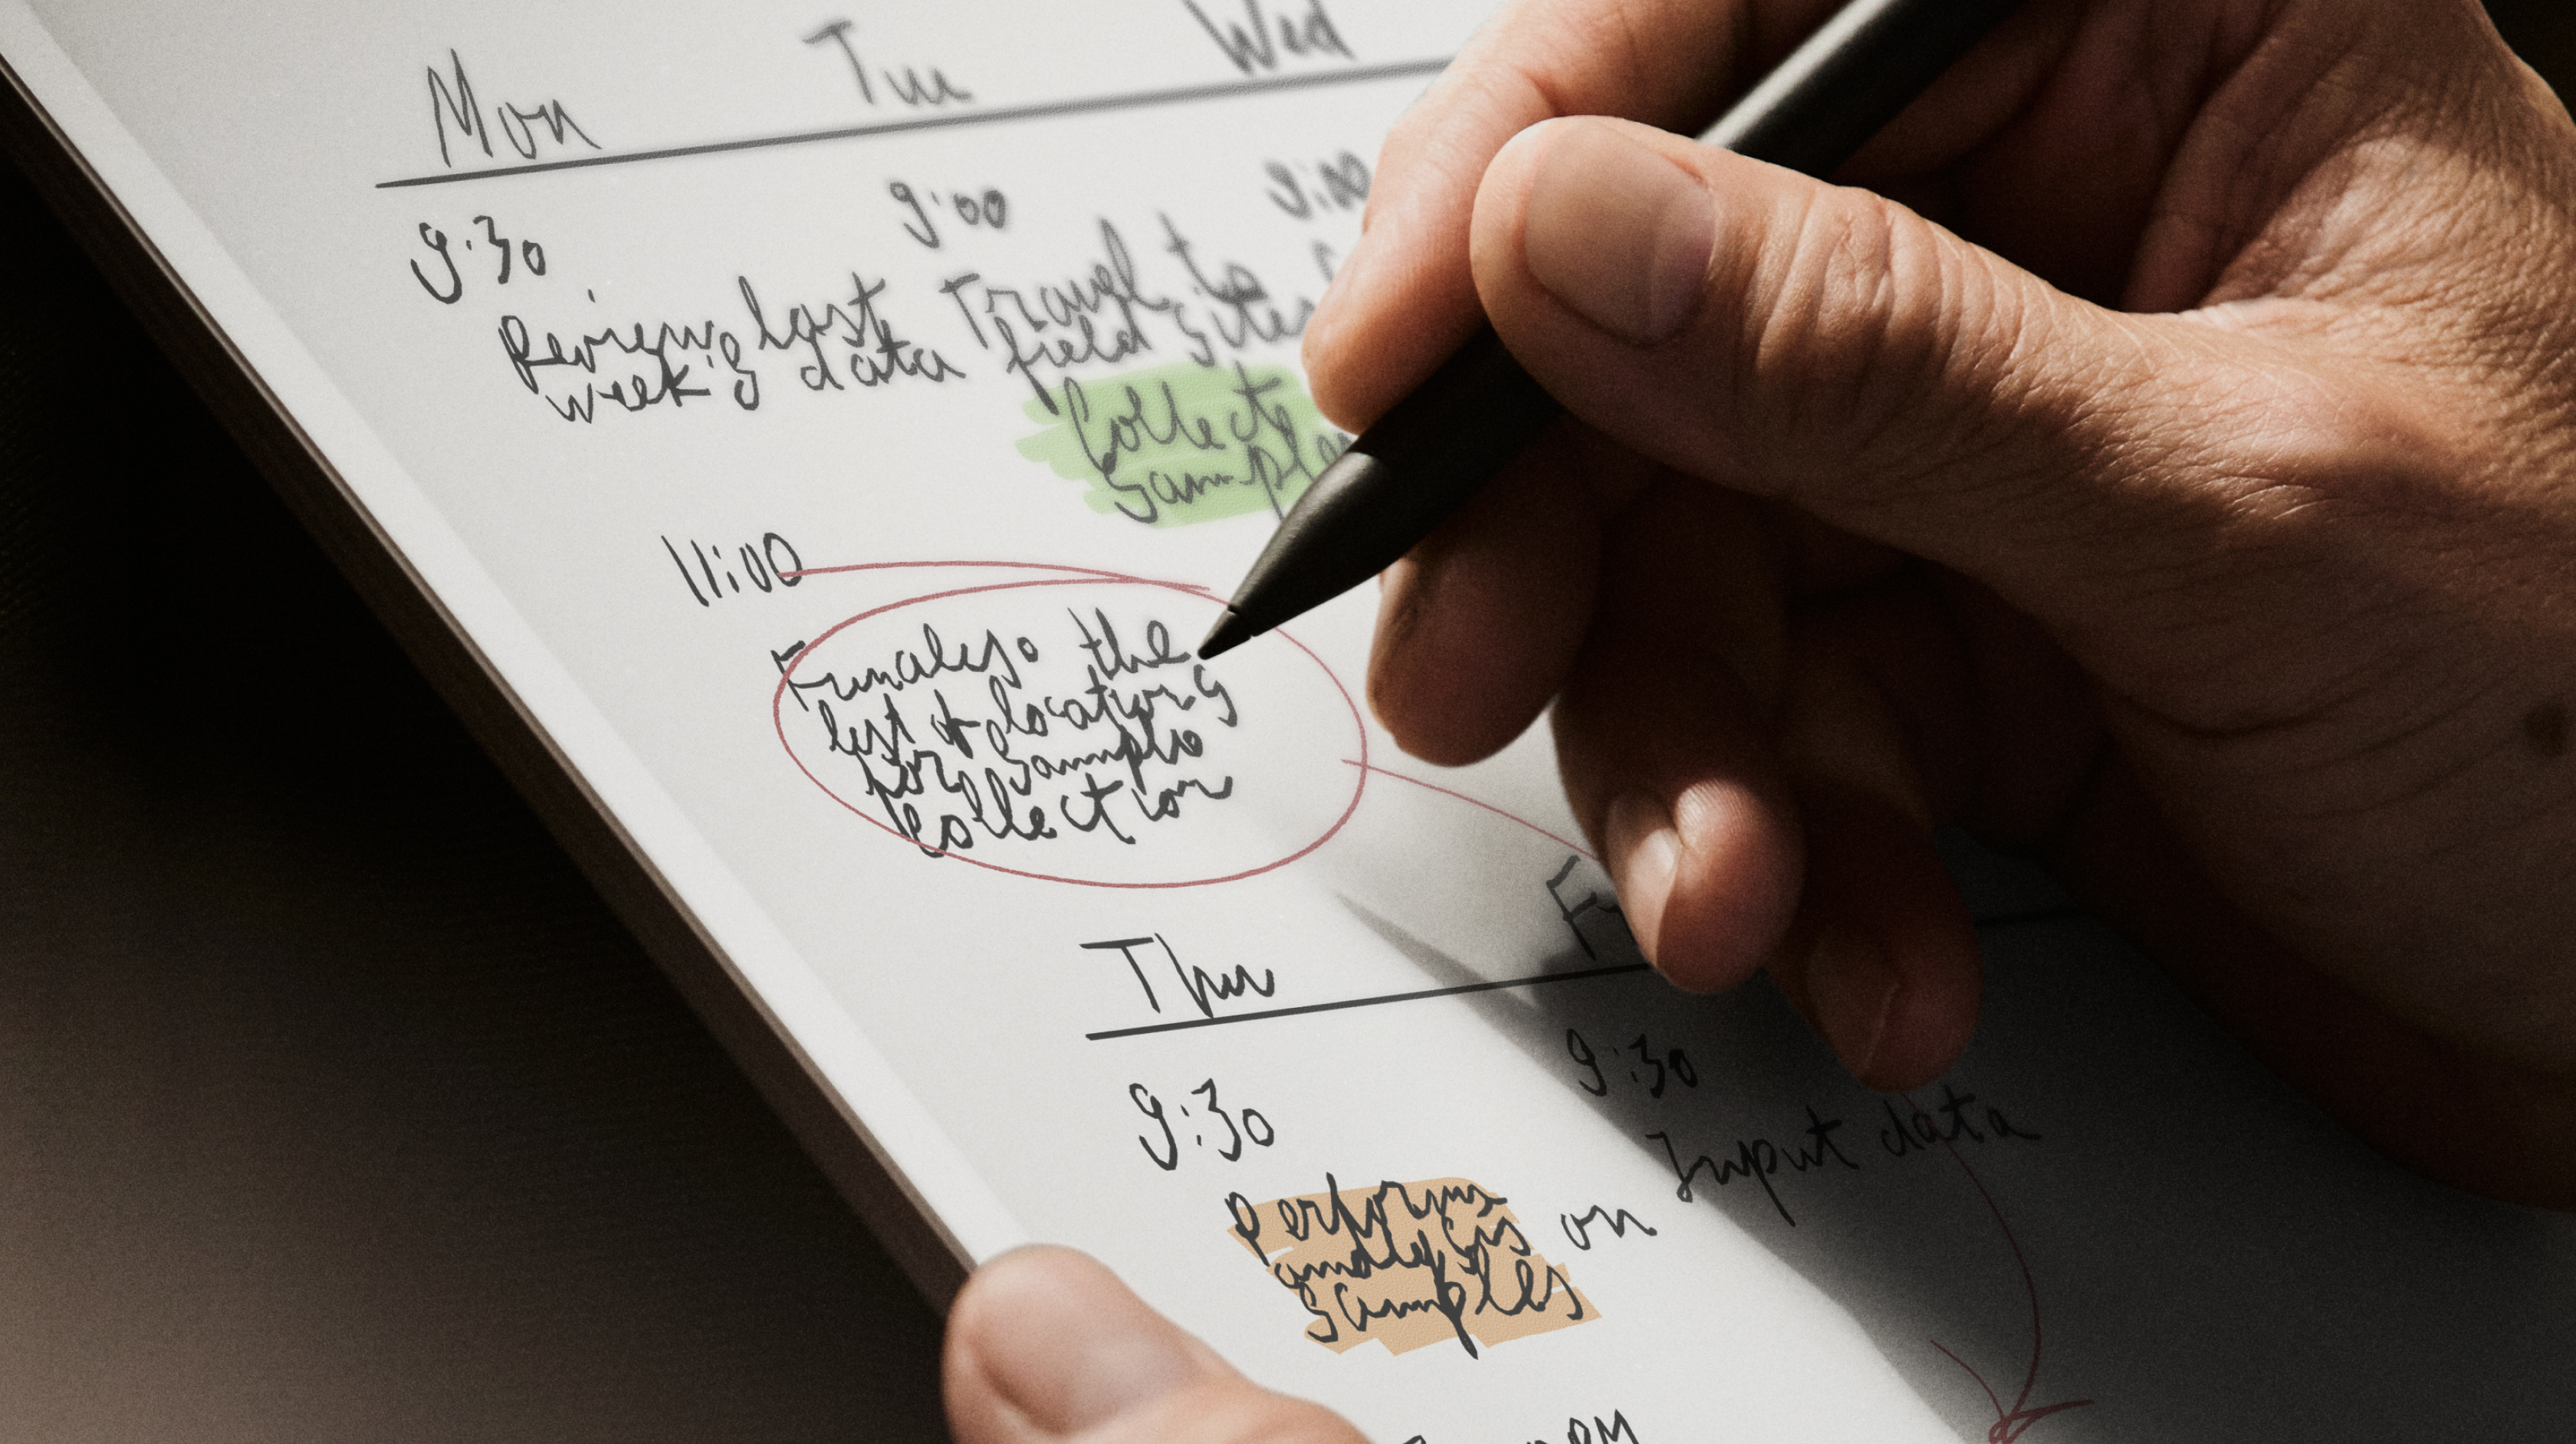 Mon
Tue
Wed
9:30
Review last
week's data
9:00
Travel to
field sites
Collect
9:00
11:00
Finalise the
list of locations
for sample
collection
Thu
9:30
Perform
analysis on
samples
9:30
Input data
PM